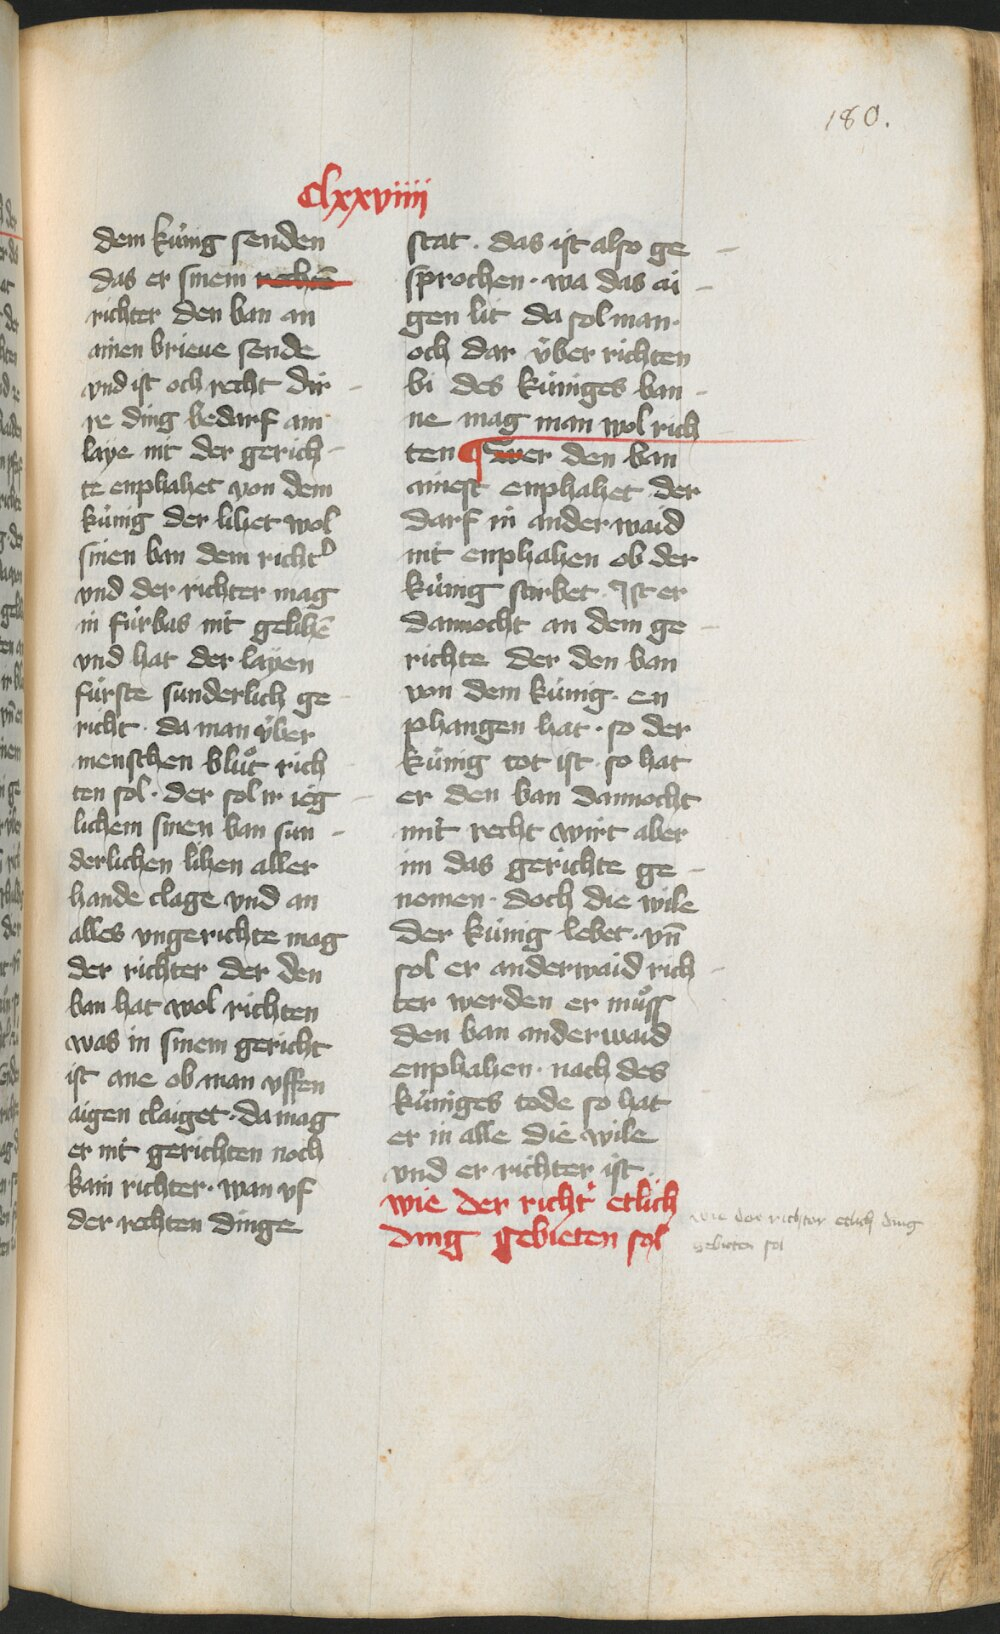 180.
Clxxviiii
dem kúnig senden
das er sinem rechtē
richter den ban an
ainen brieue sende
vnd ist och recht dir
re ding bedarf ain
laye nit der gerich-
te enphahet von dem
kúnig der lihet wol
sinen ban dem richtˀ
vnd der richter mag
in fúrbas nit gelihē
vnd hat der layen
fúrste sunderlich ge
richt · da man v́ber
menschen blůt rich
ten sol · der sol ir ieg
lichem sinen ban sun-
derlichen lihen aller
hande clage vnd an
alles vngerichte mag
der richter der den
ban hat wol richten
was in sinem gericht
ist ane ob man vffen
aigen claiget · da mag
er nit gerichten noch
kain richter · wan vf
der rechten dinge
stat · das ist also ge-
sprochen · wa das ai-
gen lit da sol man ·
och dar v́ber richten
bi des kúniges ban-
ne mag man wol rich
ten ¶ Swer den ban
ainest enphahet der
darf in ander waid
nit enphahen ob der
kúnig stirbet · Ist er
dannocht an dem ge-
richte der den ban
von dem kúnig · en
phangen hat · so der
kúnig tot ist · so hat
er den ban dannocht
mit recht wirt aber
im das gerichte ge-
nomen · doch die wile
der kúnig lebet · vn̄
sol er anderwaid rich-
ter werden er můss
den ban anderwaid
enphahen · nach des
kúniges tode so hat
er in alle die wile
vnd er richter ist ·
wie der richtˀ etlich
ding gebieten sol
wie der richter etlich ding
gebieten sol